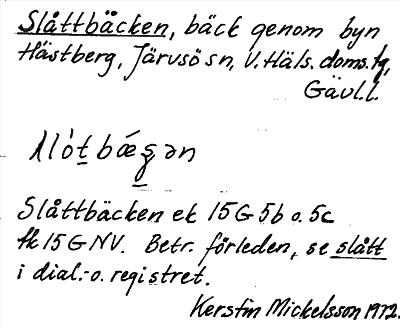 Slåttbäcken, bäck genom byn
Hästberg, Järvsö sn, V. Häls. doms.tg,
Gävl.l.
Slåttbäcken ek 15G 5b o. 5c
tk 15G NV. Betr. förleden, se slått
i dial.-o. registret.
Kerstin Mickelsson 1972.